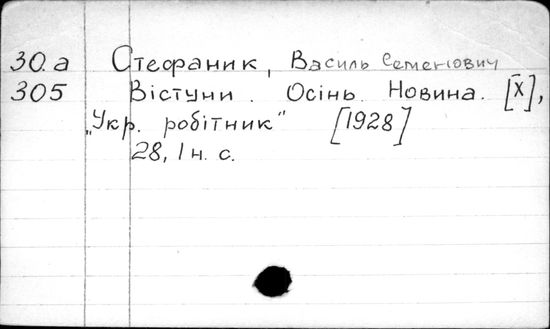 30.а Стефаник, Василь Семенович
305 Вістуни. Осінь Новина. [Х],
„Укр. робітник" [1928]
28, 1 н. с.